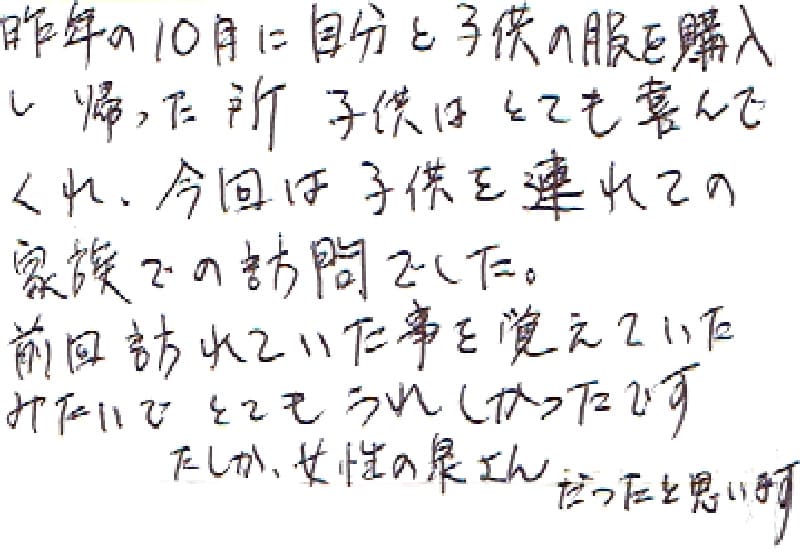 昨年の10月に自分と子供の服を購入
し帰った所 子供はとても喜んで
くれ、今回は子供を連れての
家族での訪問でした。
前回訪れていた事を覚えていた
みたいで とてもうれしかったです
たしか、女性の泉さん
だったと思います